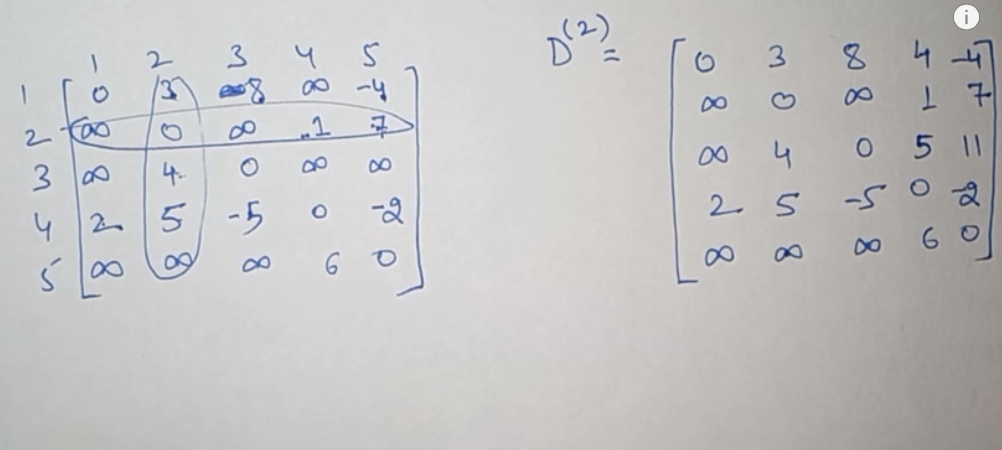 1 2 3 4 5
1 0 3 8 ∞ -4
2 ∞ 0 ∞ 1 7
3 ∞ 4 0 ∞ ∞
4 2 5 -5 0 -2
5 ∞ ∞ ∞ 6 0
D(2) =
0 3 8 4 -4
∞ 0 ∞ 1 7
∞ 4 0 5 11
2 5 -5 0 -2
∞ ∞ ∞ 6 0
i